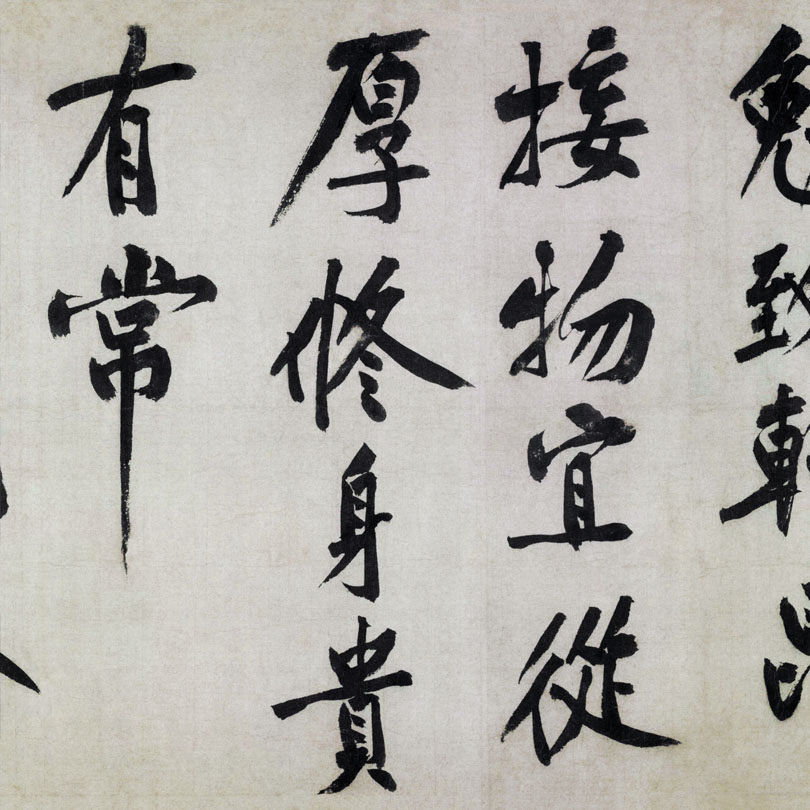 致
接物宜從
厚修身貴
有常